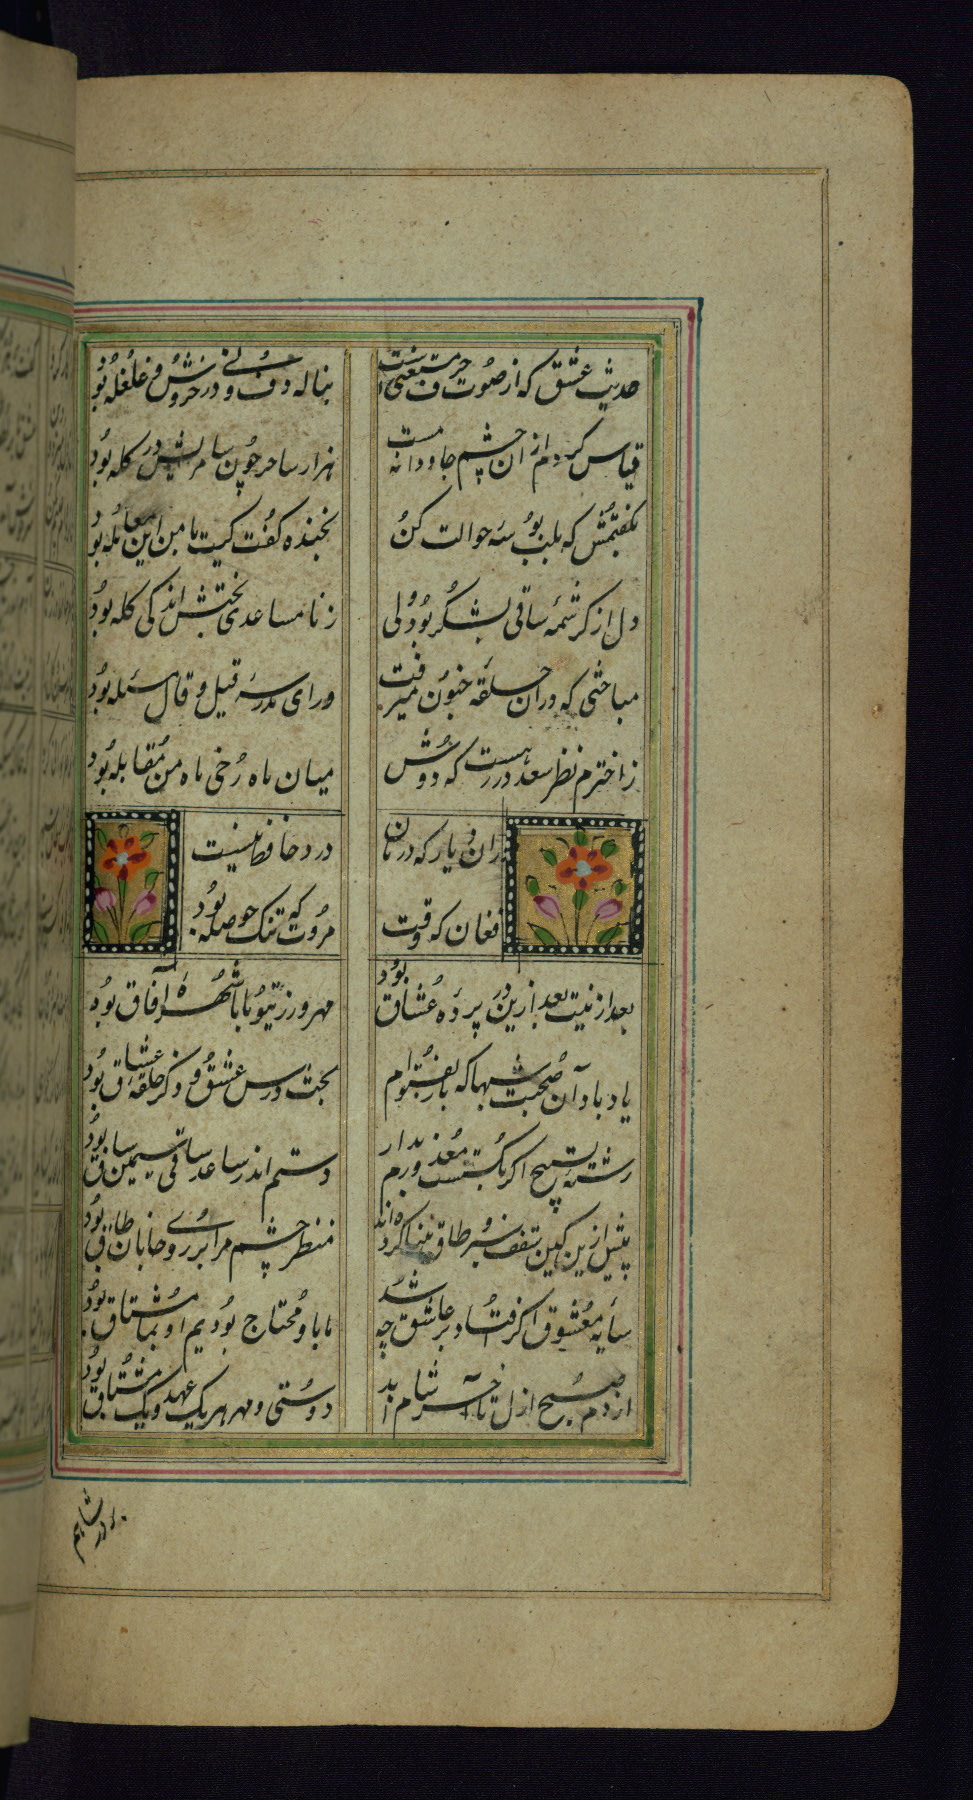 حدیث عشق که از صوت و حرف مستغنی است بناله دف و نی در خروش و غلغله بود
قیاس کردم از ان چشم جاودانه مست هزار ساحر چون سامریش در کله بود
بکفتمش که بلب بوسه حوالت کن بخنده کفت کیت با من این معامله بود
دل از کرشمه ساقی بشکر بود ولی ز نامساعدی بختش اندکی کله بود
مباحثی که دران حلقه جنون میرفت ورای مدرسه و قیل و قال مسئله بود
ز اخترم نظر سعد در رهست که دوش میان ماه رخی ماه من مقابله بود
دهان یار که درمان درد حافظ نیست
فغان که وقت مروت که تنک حوصله بود
بعد ازینت بعد ازین در پرده عشاق بود مهرورزی تو با ما شهره آفاق بود
یاد باد آن صحبت شبها که با زلف توام بحث درس عشق و ذکر حلقه عشاق بود
رشته تسبیح اکر بکسست معذورم بدار دستم اندر ساعد ساقی سیمین ساق بود
پیش ازین کین سقف سبز و طاق مینا کرده اند منظر چشم مرا ابروی جانان طاق بود
سایه معشوق اکر افتاد بر عاشق چه شد ما باو محتاج بودیم او بما مشتاق بود
از دم صبح ازل تا آخر شام ابد دوستی و مهر بر یک عهد و یک میثاق بود
بر در شاهم